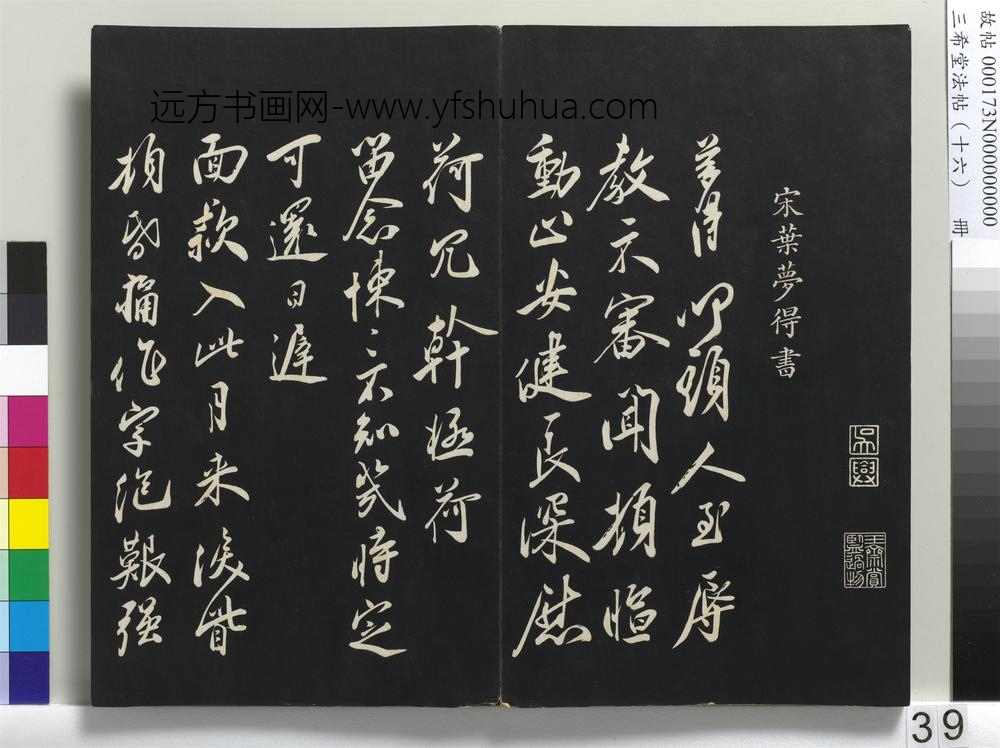 故帖 000173N000000000
三希堂法帖（十六） 冊
远方书画网-www.yfshuhua.com
宋葉夢得書
夢得 叩頭人至辱
教示審聞頓臨
動止安健良深慰
荷冗幹極荷
留念悚〻不知幾時定
可還日遲
面款入此月来痰嗽
頓昏痛作字絶艱强
39